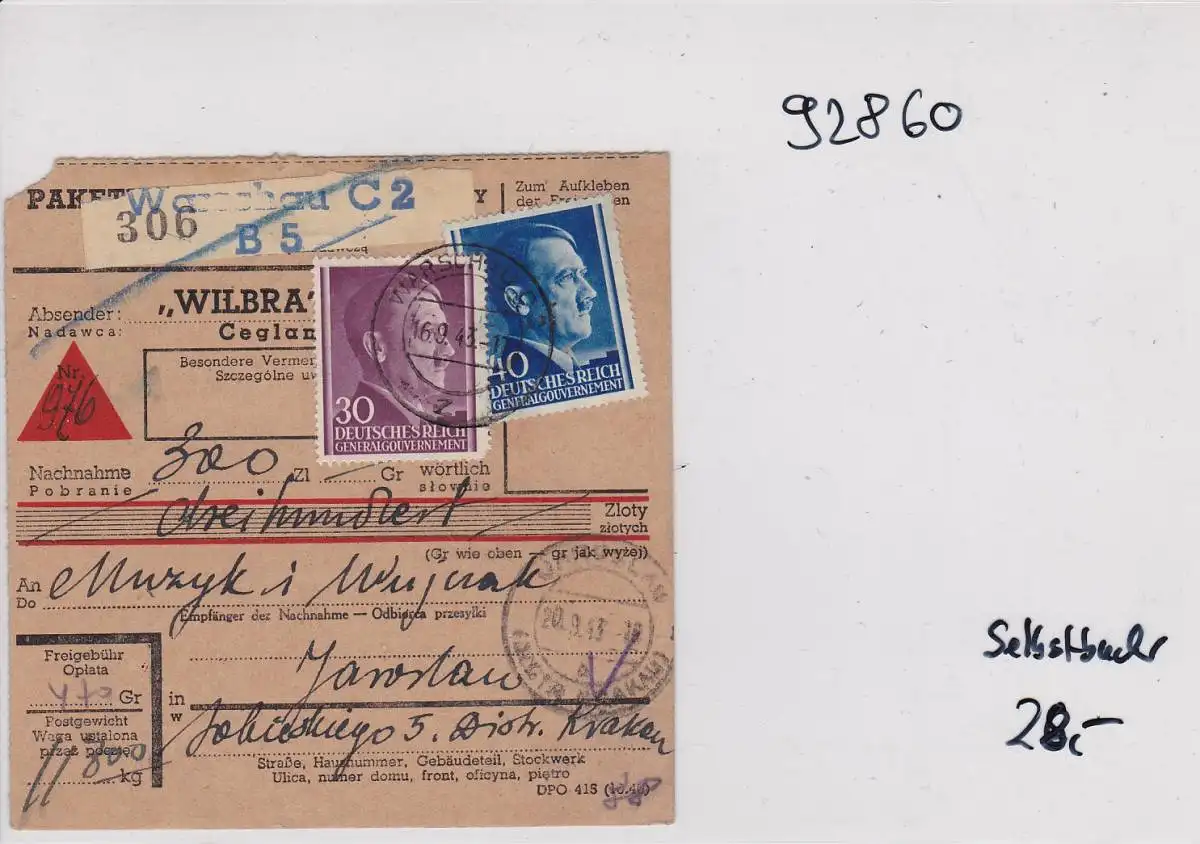 92860
PAKET
Y
Zum Aufkleben
Warschau C 2
306
B 5
Absender:
Nadawca:
„WILBRA"
Ceglan
Besondere Verme
Szczególne uw
Nr.
976
WARSCHAU C 2
16.9.43
30
DEUTSCHES REICH
GENERALGOUVERNEMENT
40
DEUTSCHES REICH
GENERALGOUVERNEMENT
Nachnahme 300 Zl — Gr wörtlich
Pobranie słownie
dreihundert Zloty
złotych
(Gr wie oben — gr jak wyżej)
An Muzyk i Wujczak
Do
Empfänger der Nachnahme — Odbiorca przesyłki
20.9.43
Freigebühr
Opłata
470 Gr
Postgewicht
Waga ustalona
przez pocztę
kg
Jaroslau
in
w
Sobieskiego 5. Distr. Krakau
Straße, Hausnummer, Gebäudeteil, Stockwerk
Ulica, numer domu, front, oficyna, piętro
DPO 415
Selbstbuchr
28,-